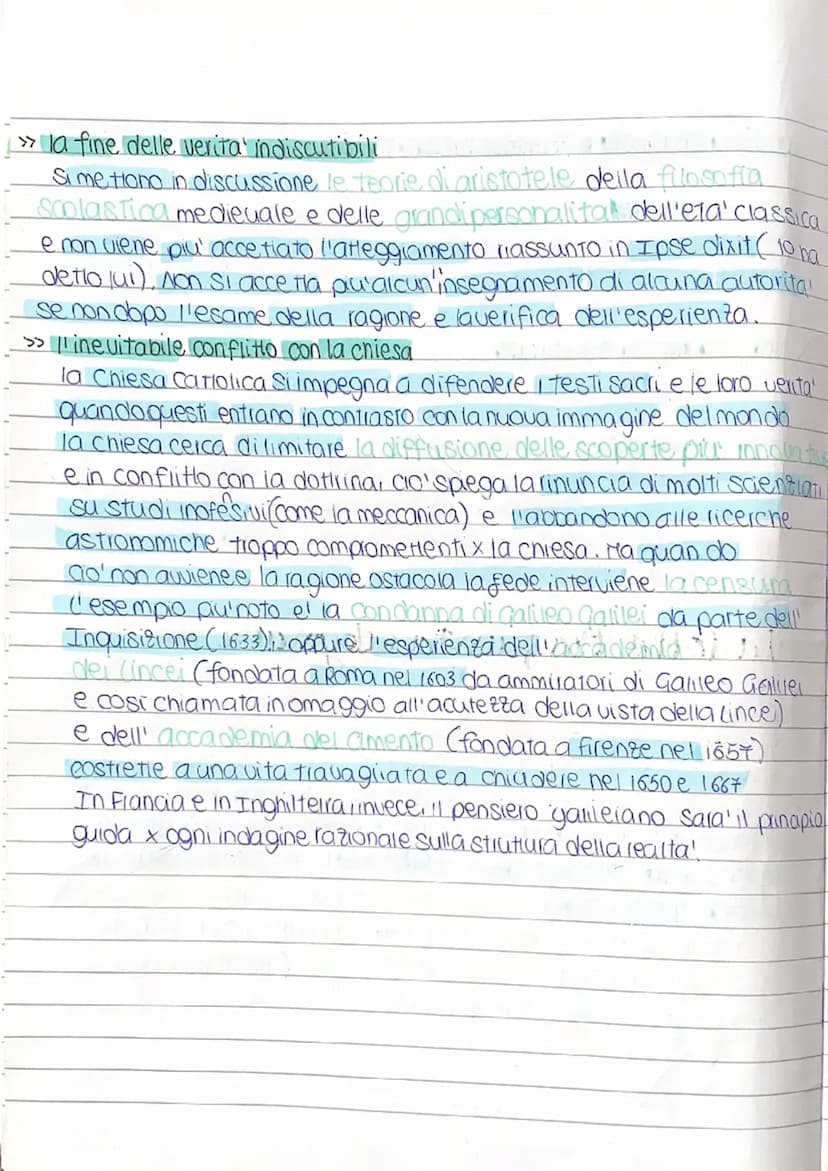 >> la fine delle verita' indiscutibili
Si mettono in discussione le teorie di aristotele della filosofia
scolastica medievale e delle grandi personalita' dell'eta' classica
e non viene piu' accettato l'atteggiamento riassunto in Ipse dixit (lo ha
detto lui), NON si accetta piu' alcun'insegnamento di alcuna autorita'
se non dopo l'esame della ragione e la verifica dell'esperienza.
>> l'inevitabile conflitto con la chiesa
la Chiesa Cattolica si impegna a difendere i testi sacri e le loro verita'
quando questi entrano in contrasto con la nuova immagine del mondo
la chiesa cerca di limitare la diffusione delle scoperte piu'
e in conflitto con la dottrina, cio' spiega la rinuncia di molti scienziati
su studi inofesivi (come la meccanica) e l'abbandono alle ricerche
astronomiche troppo compromettenti x la chiesa. Ma quando
cio' non avviene e la ragione ostacola la fede interviene la censura
l'esempio piu' noto e' la condanna di Galileo Galilei da parte dell'
Inquisizione (1633); oppure l'esperienza dell'accademia
dei Lincei (fondata a Roma nel 1603 da ammiratori di Galileo Galilei
e cosi chiamata in omaggio all'acutezza della vista della lince)
e dell'accademia del cimento (fondata a firenze nel 1657)
costrette a una vita travagliata e a chiudere nel 1650 e 1667
In Francia e in Inghilterra, invece, il pensiero galileiano sara' il principio
guida x ogni indagine razionale sulla struttura della realta'.